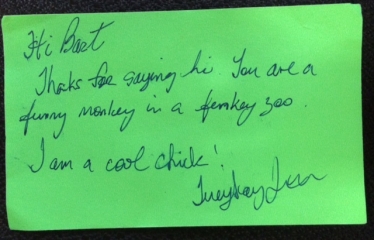 Hi Bart
Thanks for saying hi. You are a
funny monkey in a funkey zoo.
I am a cool chick!